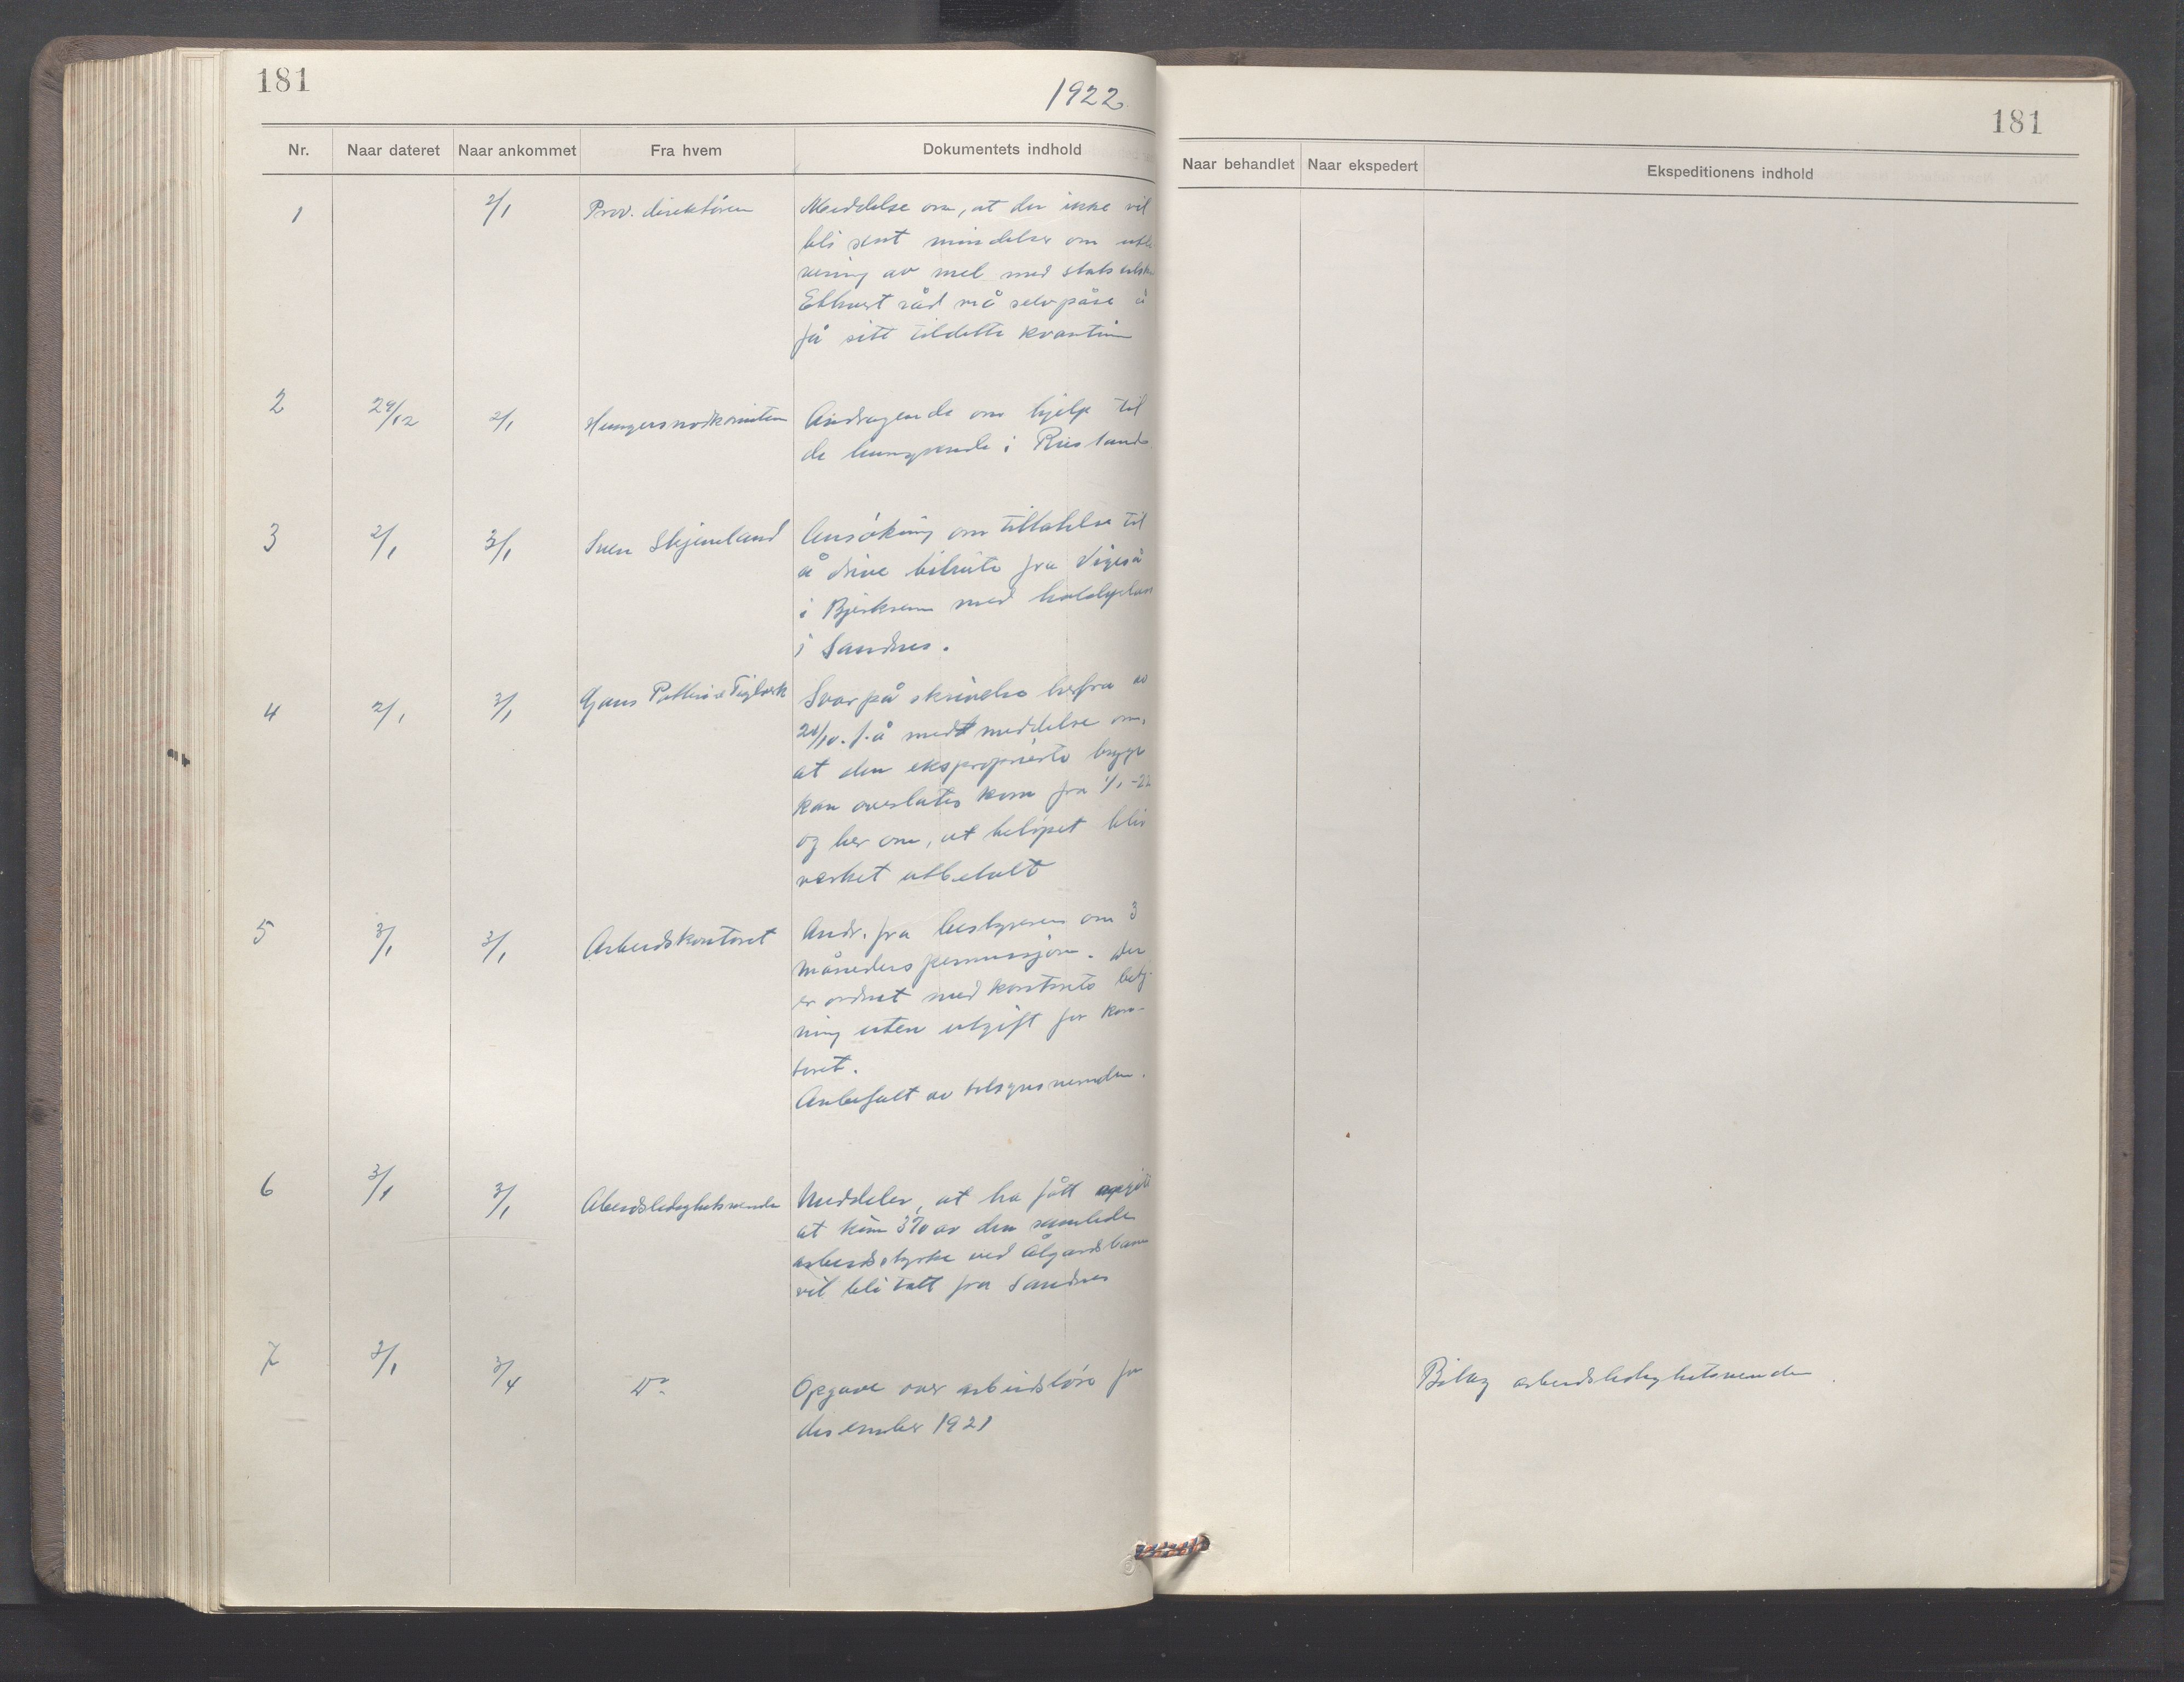 181
1922
Nr. Naar dateret Naar ankommet Fra hvem Dokumentets indhold
1 2/1 Prov. direktören Meddelse om, at der ikke vil
bli sent mindelser om utle
vering av mel med stats
Ethvert råd må selv påse å
få sitt tildelte kvantum
2 29/12 2/1 Hungersnødkomiteen Andragende om hjelp til
de hungrende i Russland
3 2/1 3/1 Sven Skjeveland Ansökning om tillatelse til
å drive bilrute fra Vigeså
i Bjerkreim med holdeplass
i Sandnes.
4 2/1 3/1 Gans Potteri & Teglverk Svar på skrivelse herfra av
f. å med meddelse om,
at den eksproprierte brygge
kan overlates kom fra 1/1-22
og ber om, at belöpet blir
verket utbetalt
5 3/1 3/1 Arbeidskontoret Andr. fra bestyreren om 3
måneders permisjon. Der
er ordnet med kontorets betj.
ning uten utgift for kon-
toret.
Anbefalt av tilsynsnemnden.
6 3/1 3/1 Abeidsledighetsnemda Meddeler, at ha fått opgitt
at kun 3% av den samlede
arbeidsstyrke ved Ålgårdsbanen
vil bli tatt fra Sandnes
7 3/1 3/4 Do. Opgave over arbeidslöse for
desember 1921
181
Naar behandlet Naar ekspedert Ekspeditionens indhold
Bilag arbeidsledighetsnemden.